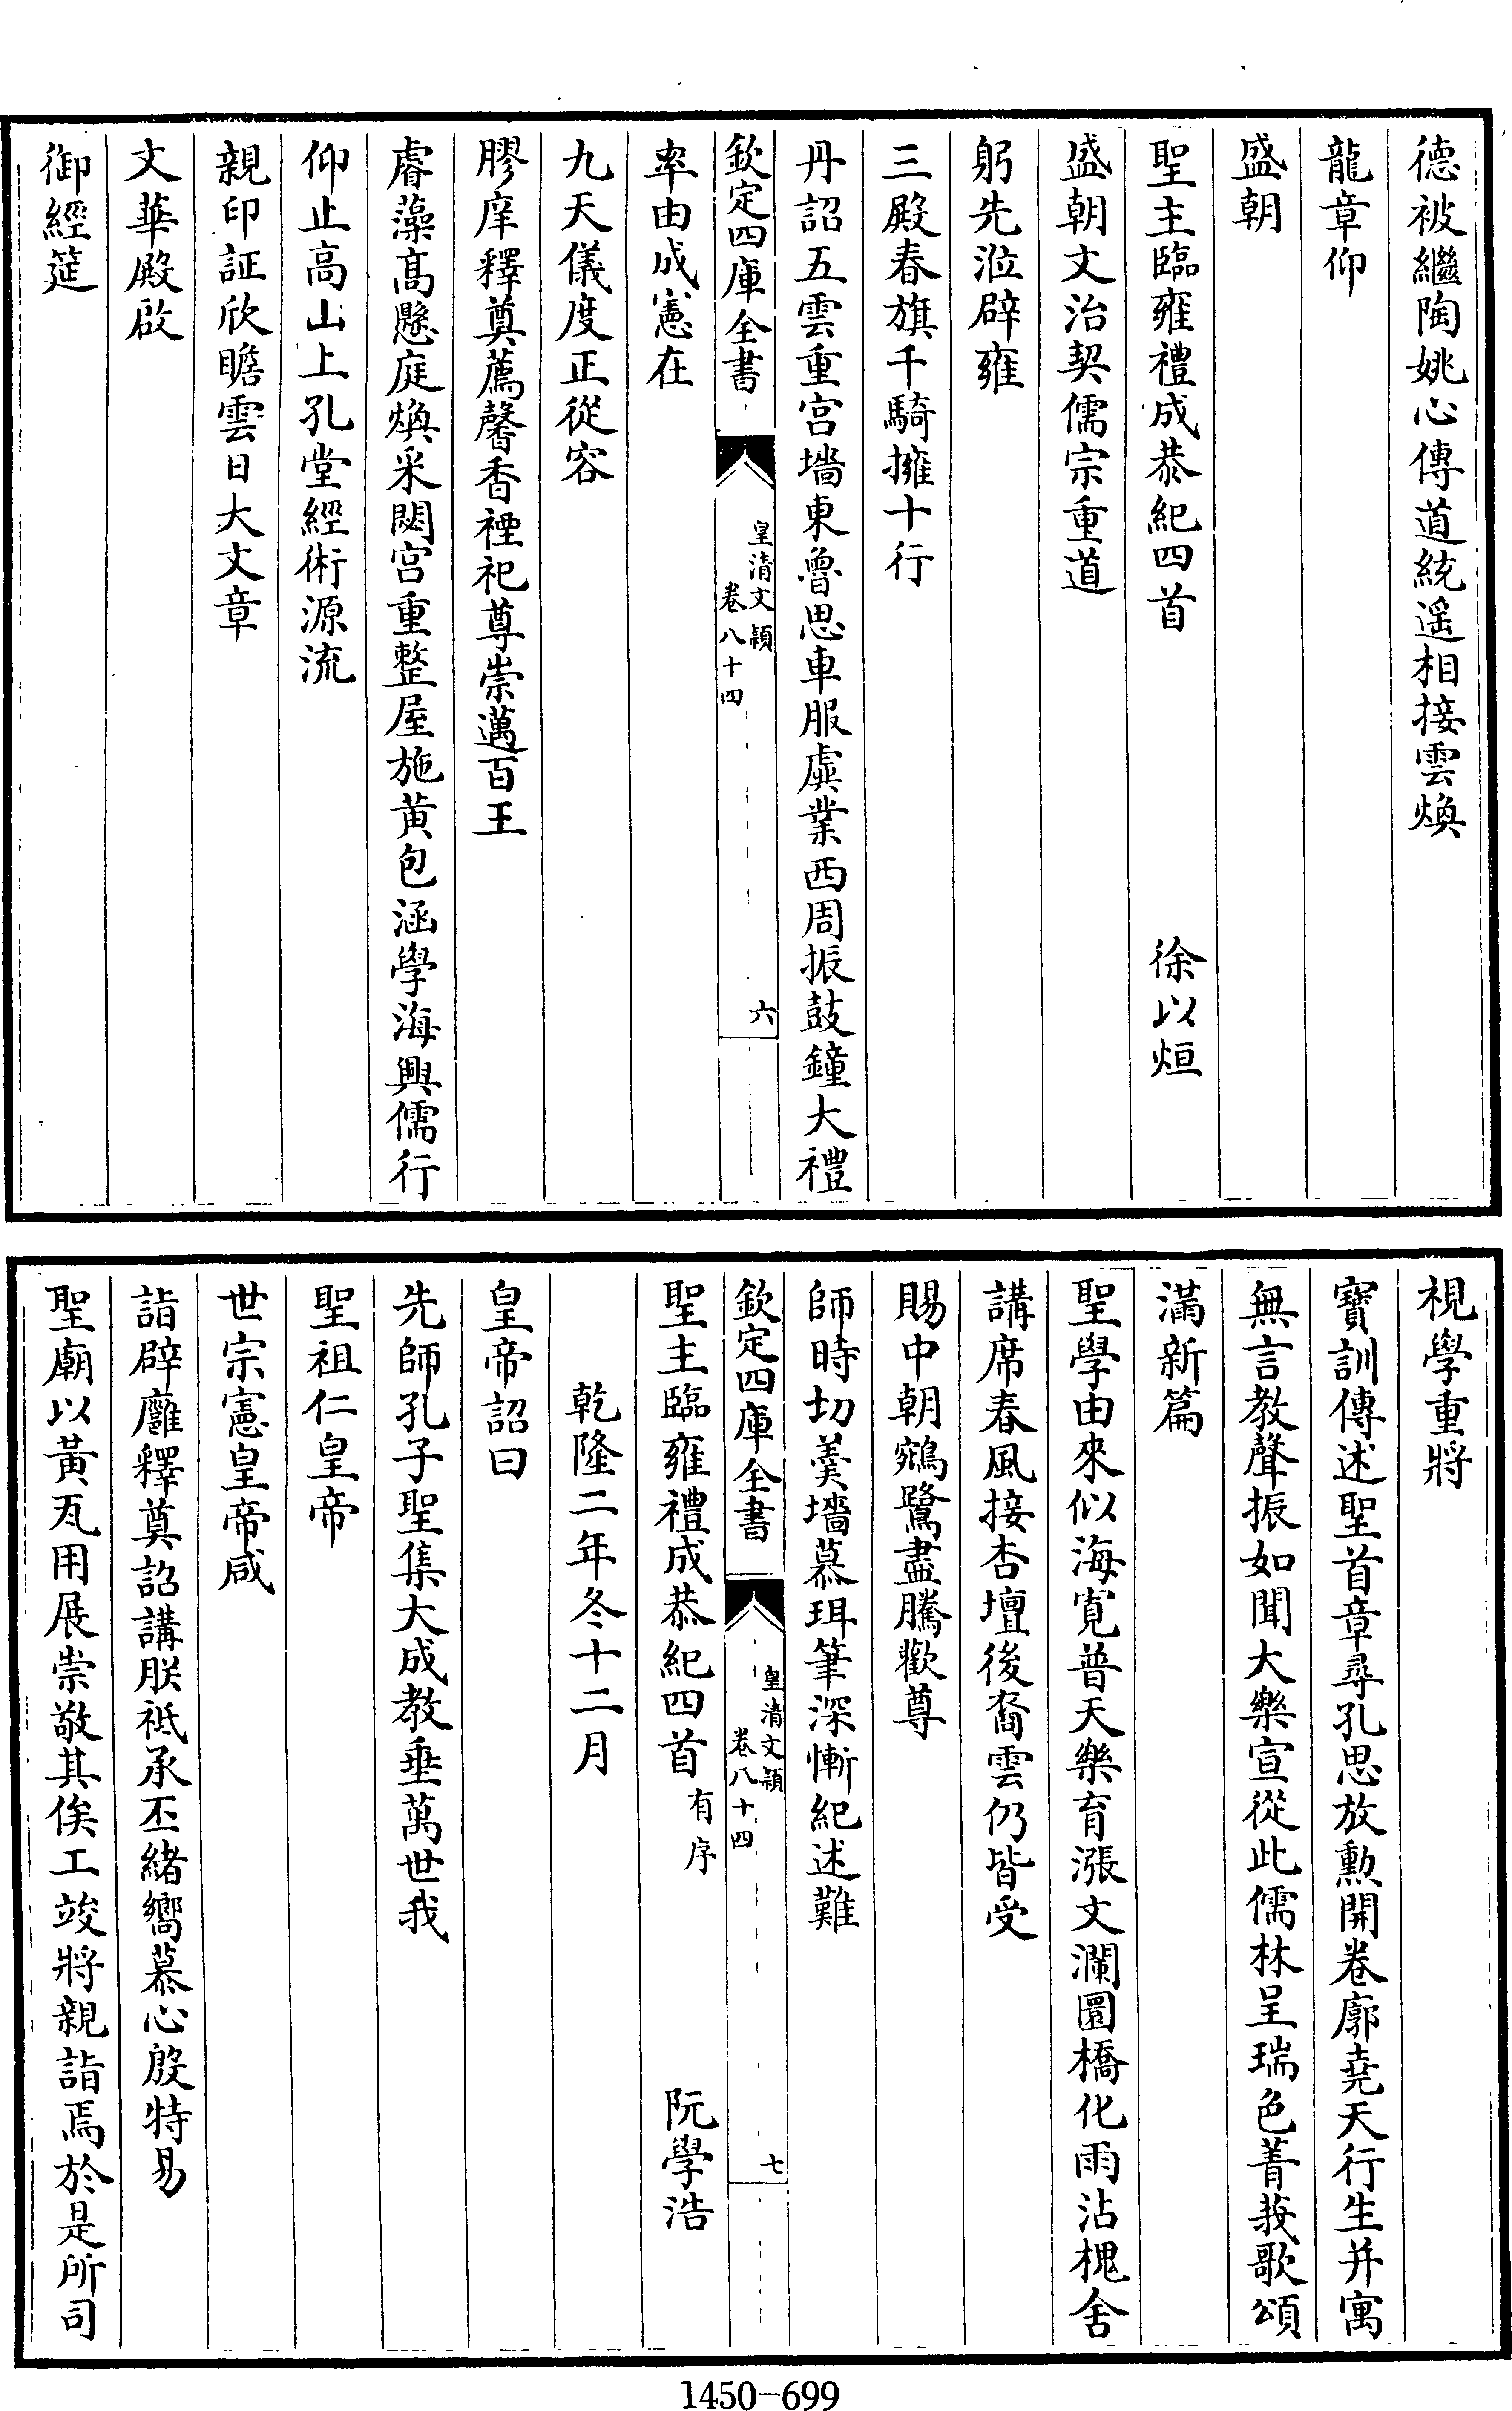 德被繼陶姚心傳道統遥相接雲煥
龍章仰
盛朝
聖主臨雍禮成恭紀四首 徐以烜
盛朝文治契儒宗重道
躬先涖辟雍
三殿春旗千騎擁十行
丹詔五雲重宫墻東魯思車服虡業西周振鼓鐘大禮
欽定四庫全書
皇清文穎
卷八十四
六
率由成憲在
九天儀度正從容
膠庠釋奠薦馨香禋祀尊崇邁百王
睿藻髙懸庭煥采閟宫重整屋施黄包涵學海興儒行
仰止高山上孔堂經術源流
親印証欣瞻雲日大文章
文華殿啟
御經筵
視學重將
寶訓傳述聖首章尋孔思放勲開卷廓堯天行生并寓
無言教聲振如聞大樂宣從此儒林呈瑞色菁莪歌頌
滿新篇
聖學由來似海寛普天樂育漲文瀾圜橋化雨沾槐舍
講席春風接杏壇後裔雲仍皆受
賜中朝鵷鷺盡騰歡尊
師時切羮墻慕珥筆深慚紀述難
欽定四庫全書
皇清文穎
卷八十四
七
聖主臨雍禮成恭紀四首 有序 阮學浩
乾隆二年冬十二月
皇帝詔曰
先師孔子聖集大成教垂萬世我
聖祖仁皇帝
世宗憲皇帝咸
詣辟廱釋奠詔講朕祗承丕緒嚮慕心殷特易
聖廟以黄瓦用展崇敬其俟工竣將親詣焉於是所司
1450-699